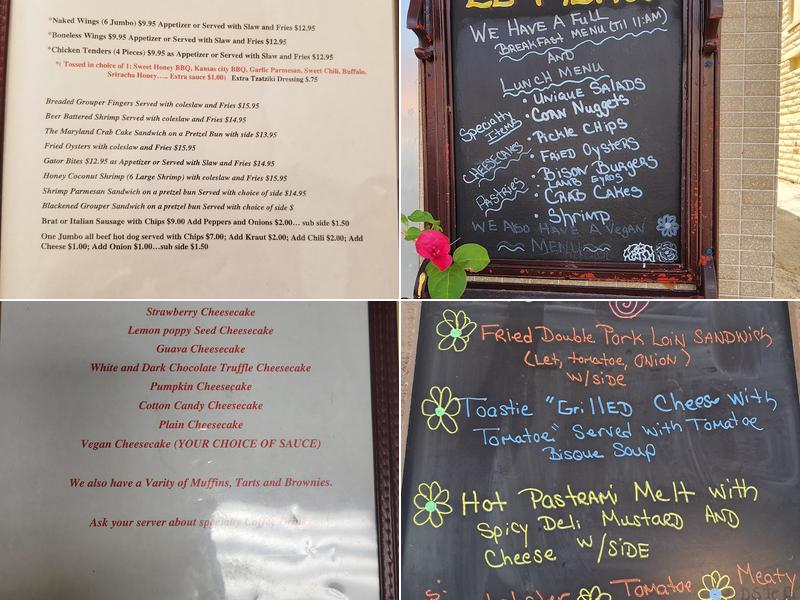 *Naked Wings (6 Jumbo) $9.95 Appetizer or Served with Slaw and Fries $12.95
*Boneless Wings $9.95 Appetizer or Served with Slaw and Fries $12.95
*Chicken Tenders (4 Pieces) $9.95 as Appetizer or Served with Slaw and Fries $12.95
*( Tossed in choice of 1: Sweet Honey BBQ, Kansas city BBQ, Garlic Parmesan, Sweet Chili, Buffalo,
Sriracha Honey….. Extra sauce $1.00) Extra Tzatziki Dressing $.75
Breaded Grouper Fingers Served with coleslaw and Fries $15.95
Beer Battered Shrimp Served with coleslaw and Fries $14.95
The Maryland Crab Cake Sandwich on a Pretzel Bun with side $13.95
Fried Oysters with coleslaw and Fries $15.95
Gator Bites $12.95 as Appetizer or Served with Slaw and Fries $14.95
Honey Coconut Shrimp (6 Large Shrimp) with coleslaw and Fries $15.95
Shrimp Parmesan Sandwich on a pretzel bun Served with choice of side $14.95
Blackened Grouper Sandwich on a pretzel bun Served with choice of side $
Brat or Italian Sausage with Chips $9.00 Add Peppers and Onions $2.00… sub side $1.50
One Jumbo all beef hot dog served with Chips $7.00; Add Kraut $2.00; Add Chili $2.00; Add
Cheese $1.00; Add Onion $1.00…sub side $1.50
We Have A Full
Breakfast Menu (Til 11:AM)
AND
Lunch Menu
Specialty Items
• Unique Salads
• Corn Nuggets
• Pickle Chips
CHEESECAKES
• Fried Oysters
• Bison Burgers
Lamb Gyros
PASTRIES
• Crab Cakes
• Shrimp
We Also Have A Vegan
Menu
Strawberry Cheesecake
Lemon poppy Seed Cheesecake
Guava Cheesecake
White and Dark Chocolate Truffle Cheesecake
Pumpkin Cheesecake
Cotton Candy Cheesecake
Plain Cheesecake
Vegan Cheesecake (YOUR CHOICE OF SAUCE)
We also have a Varity of Muffins, Tarts and Brownies.
Ask your server about specialty Coffee
Fried Double Pork Loin SANDWICH
(Let, tomatoe, ONION)
W/SIDE
Toastie "Grilled Cheese With
Tomatoe" Served with Tomatoe
Bisque Soup
Hot Pastrami Melt with
Spicy Deli Mustard AND
Cheese W/SIDE
Tomatoe
Meaty